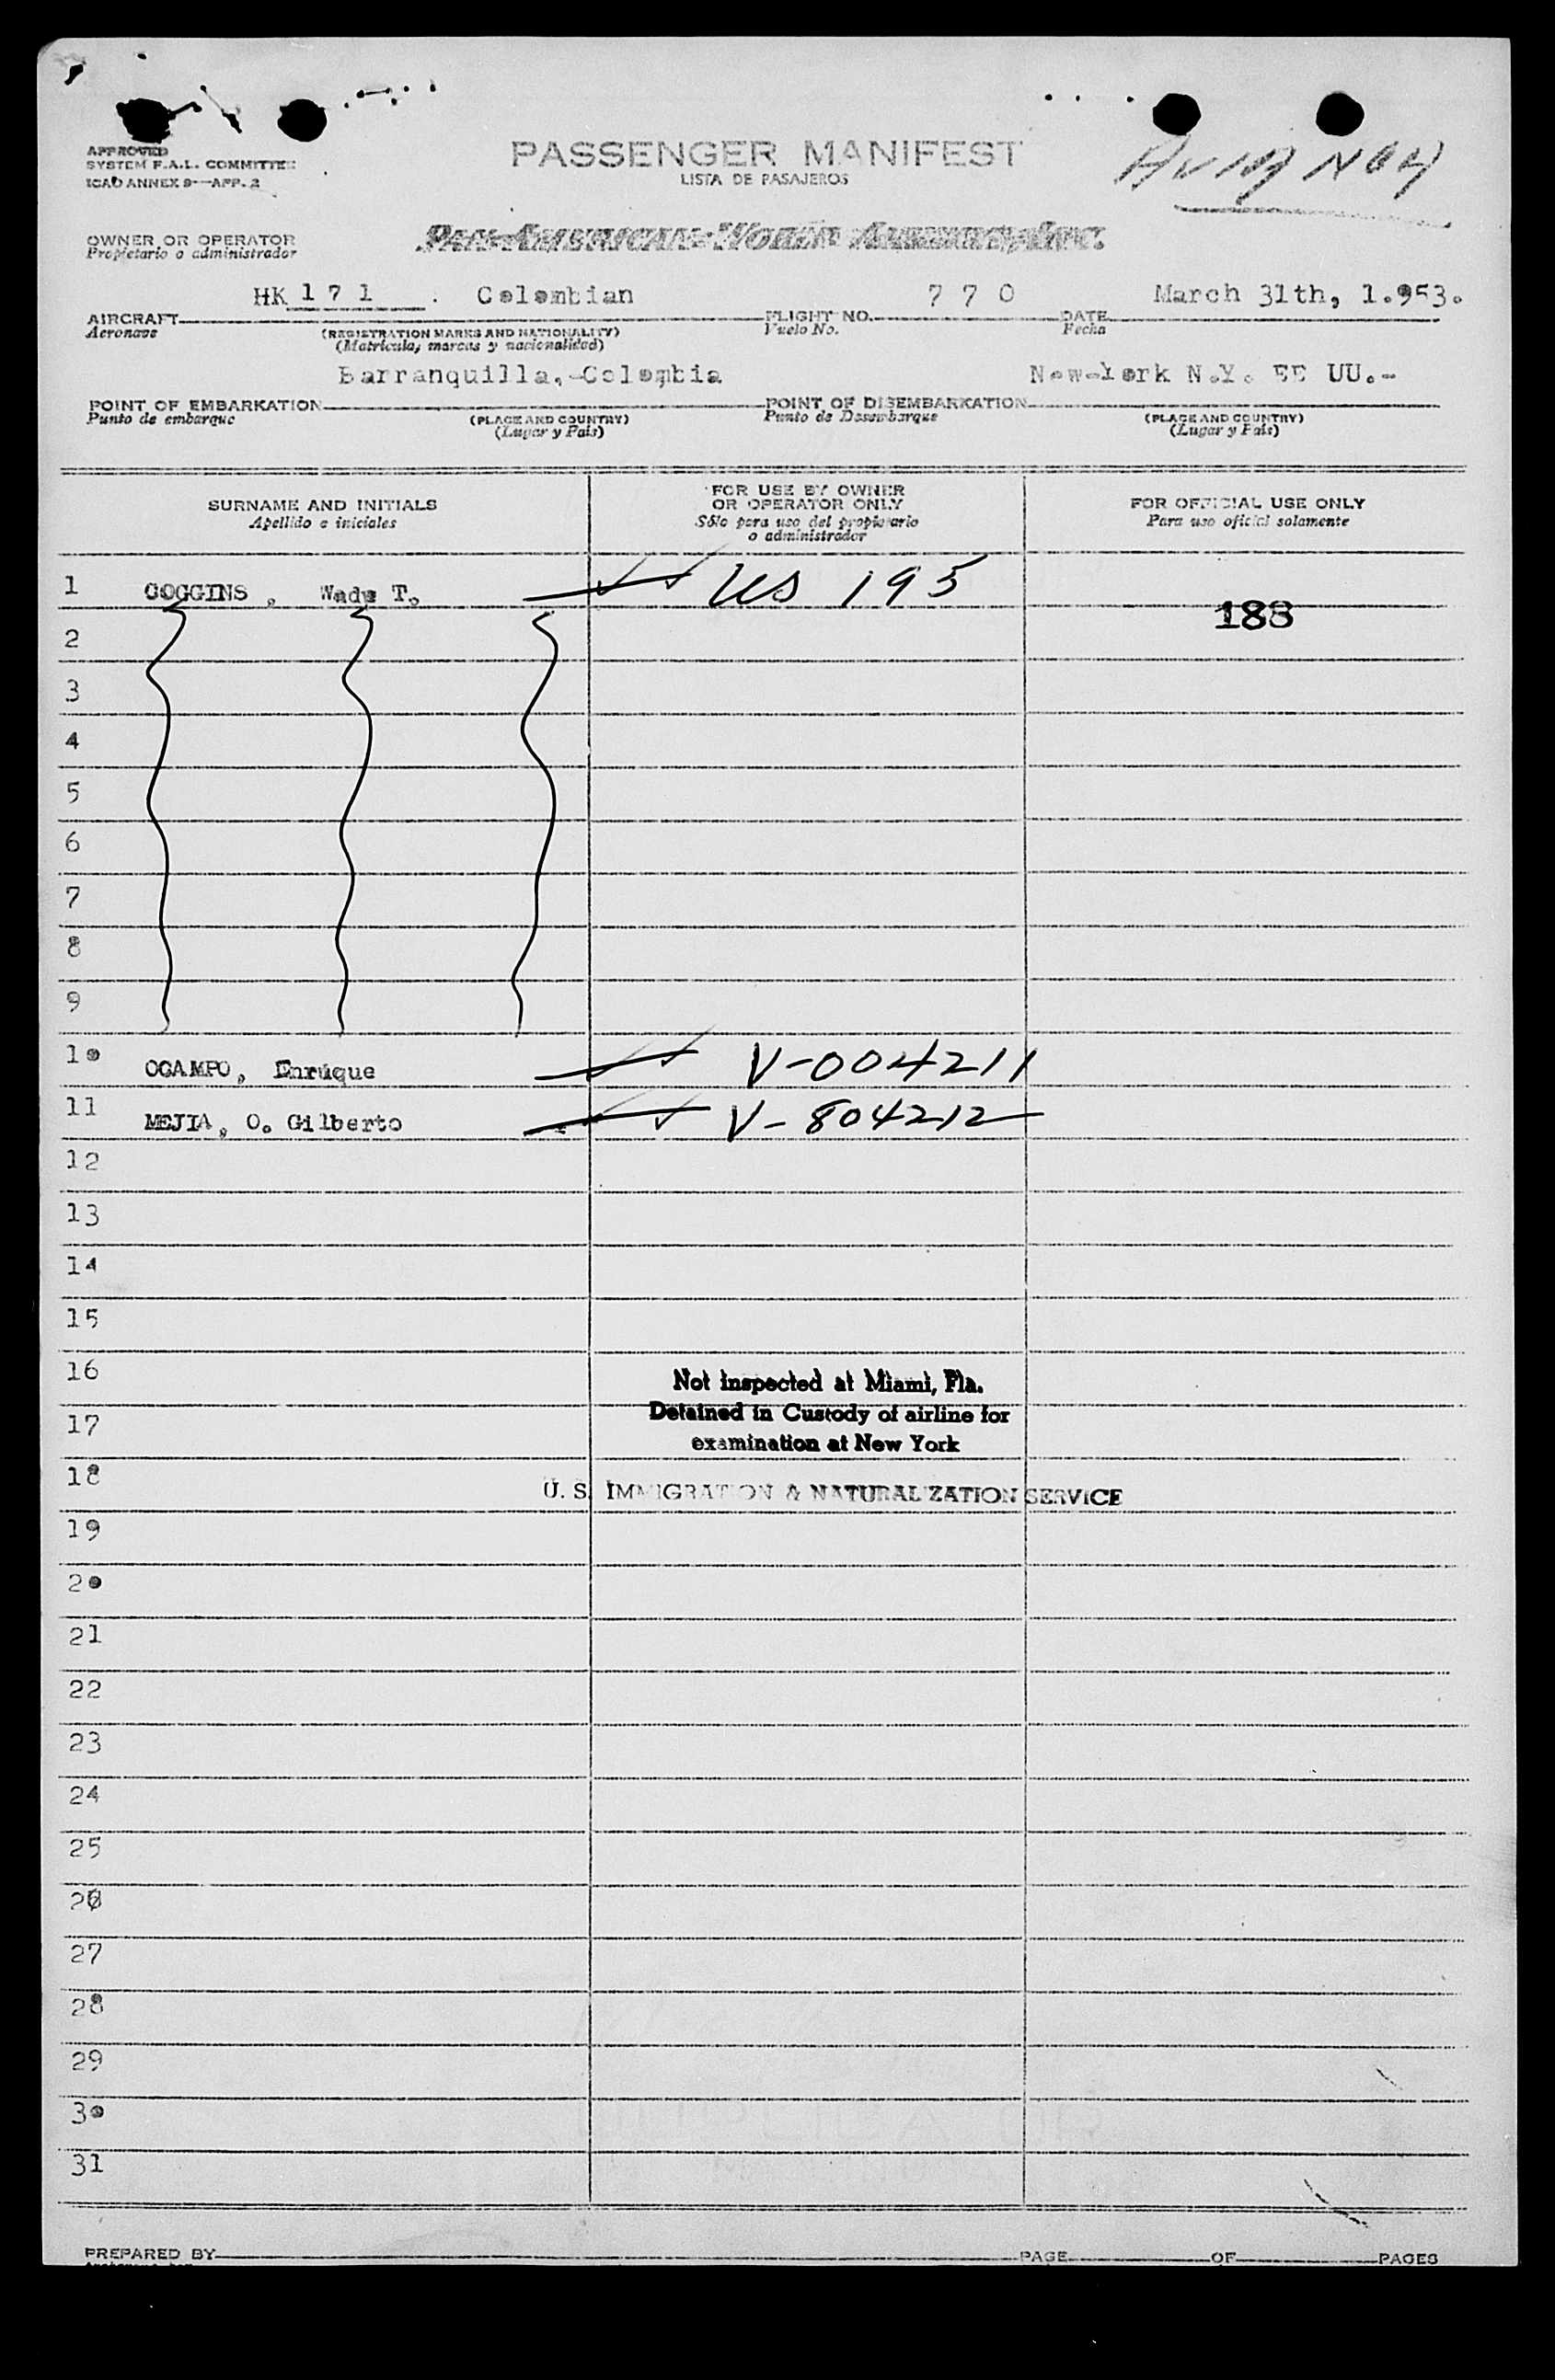 APPROVED
SYSTEM F.A.L. COMMITTEE
ICAO ANNEX 9—APP. 2
PASSENGER MANIFEST
LISTA DE PASAJEROS
OWNER OR OPERATOR
Propietario o administrador
PAN AMERICAN WORLD AIRWAYS, INC.
HK 171 . Colombian
770
March 31th, 1.953.
AIRCRAFT
Aeronave
(REGISTRATION MARKS AND NATIONALITY)
(Matricula, marcas y nacionalidad)
FLIGHT NO.
Vuelo No.
DATE
Fecha
Barranquilla,-Colombia
New-York N.Y. EE UU.-
POINT OF EMBARKATION
Punto de embarque
(PLACE AND COUNTRY)
(Lugar y País)
POINT OF DISEMBARKATION
Punto de Desembarque
(PLACE AND COUNTRY)
(Lugar y País)
SURNAME AND INITIALS
Apellido e iniciales
FOR USE BY OWNER
OR OPERATOR ONLY
Sólo para uso del propietario
o administrador
FOR OFFICIAL USE ONLY
Para uso oficial solamente
1 GOGGINS , Wade T. US 195
188
2
3
4
5
6
7
8
9
10 OCAMPO, Enrique V-004211
11 MEJIA, O. Gilberto V-804212
12
13
14
15
16
Not inspected at Miami, Fla.
17
Detained in Custody of airline for
examination at New York
18
U. S. IMMIGRATION & NATURALIZATION SERVICE
19
20
21
22
23
24
25
26
27
28
29
30
31
PREPARED BY
PAGE OF PAGES